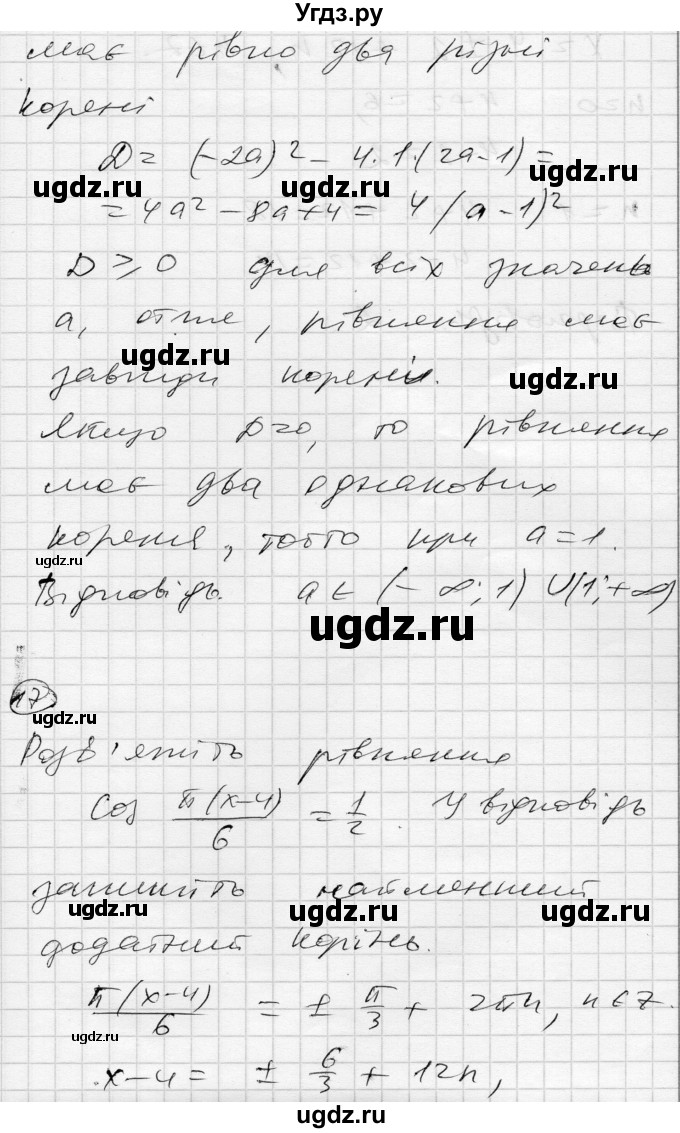 Угдз.ру
має рівно два різні
корені
D = (-2a)² - 4·1·(2a-1) =
ugdz.ru ugdz.ru
= 4a² - 8a + 4 = 4(a-1)²
D ≥ 0 для всіх значень
a, отже, рівняння має
ugdz.ru
завжди корені.
ugdz.ru
Якщо D=0, то рівняння
має два однакових
кореня, тобто при a=1.
ugdz.ru
Відповідь. a ∈ (-∞; 1) ∪ (1; +∞)
ugdz.ru
17
ugdz.ru
Розв'яжіть рівняння
cos π(x-4)/6 = 1/2. У відповідь
запишіть найменший
ugdz.ru ugdz.ru ugdz.ru
додатний корінь.
π(x-4)/6 = ± π/3 + 2πn, n∈Z.
ugdz.ru
x-4 = ± 6/3 + 12n,
ugdz.ru